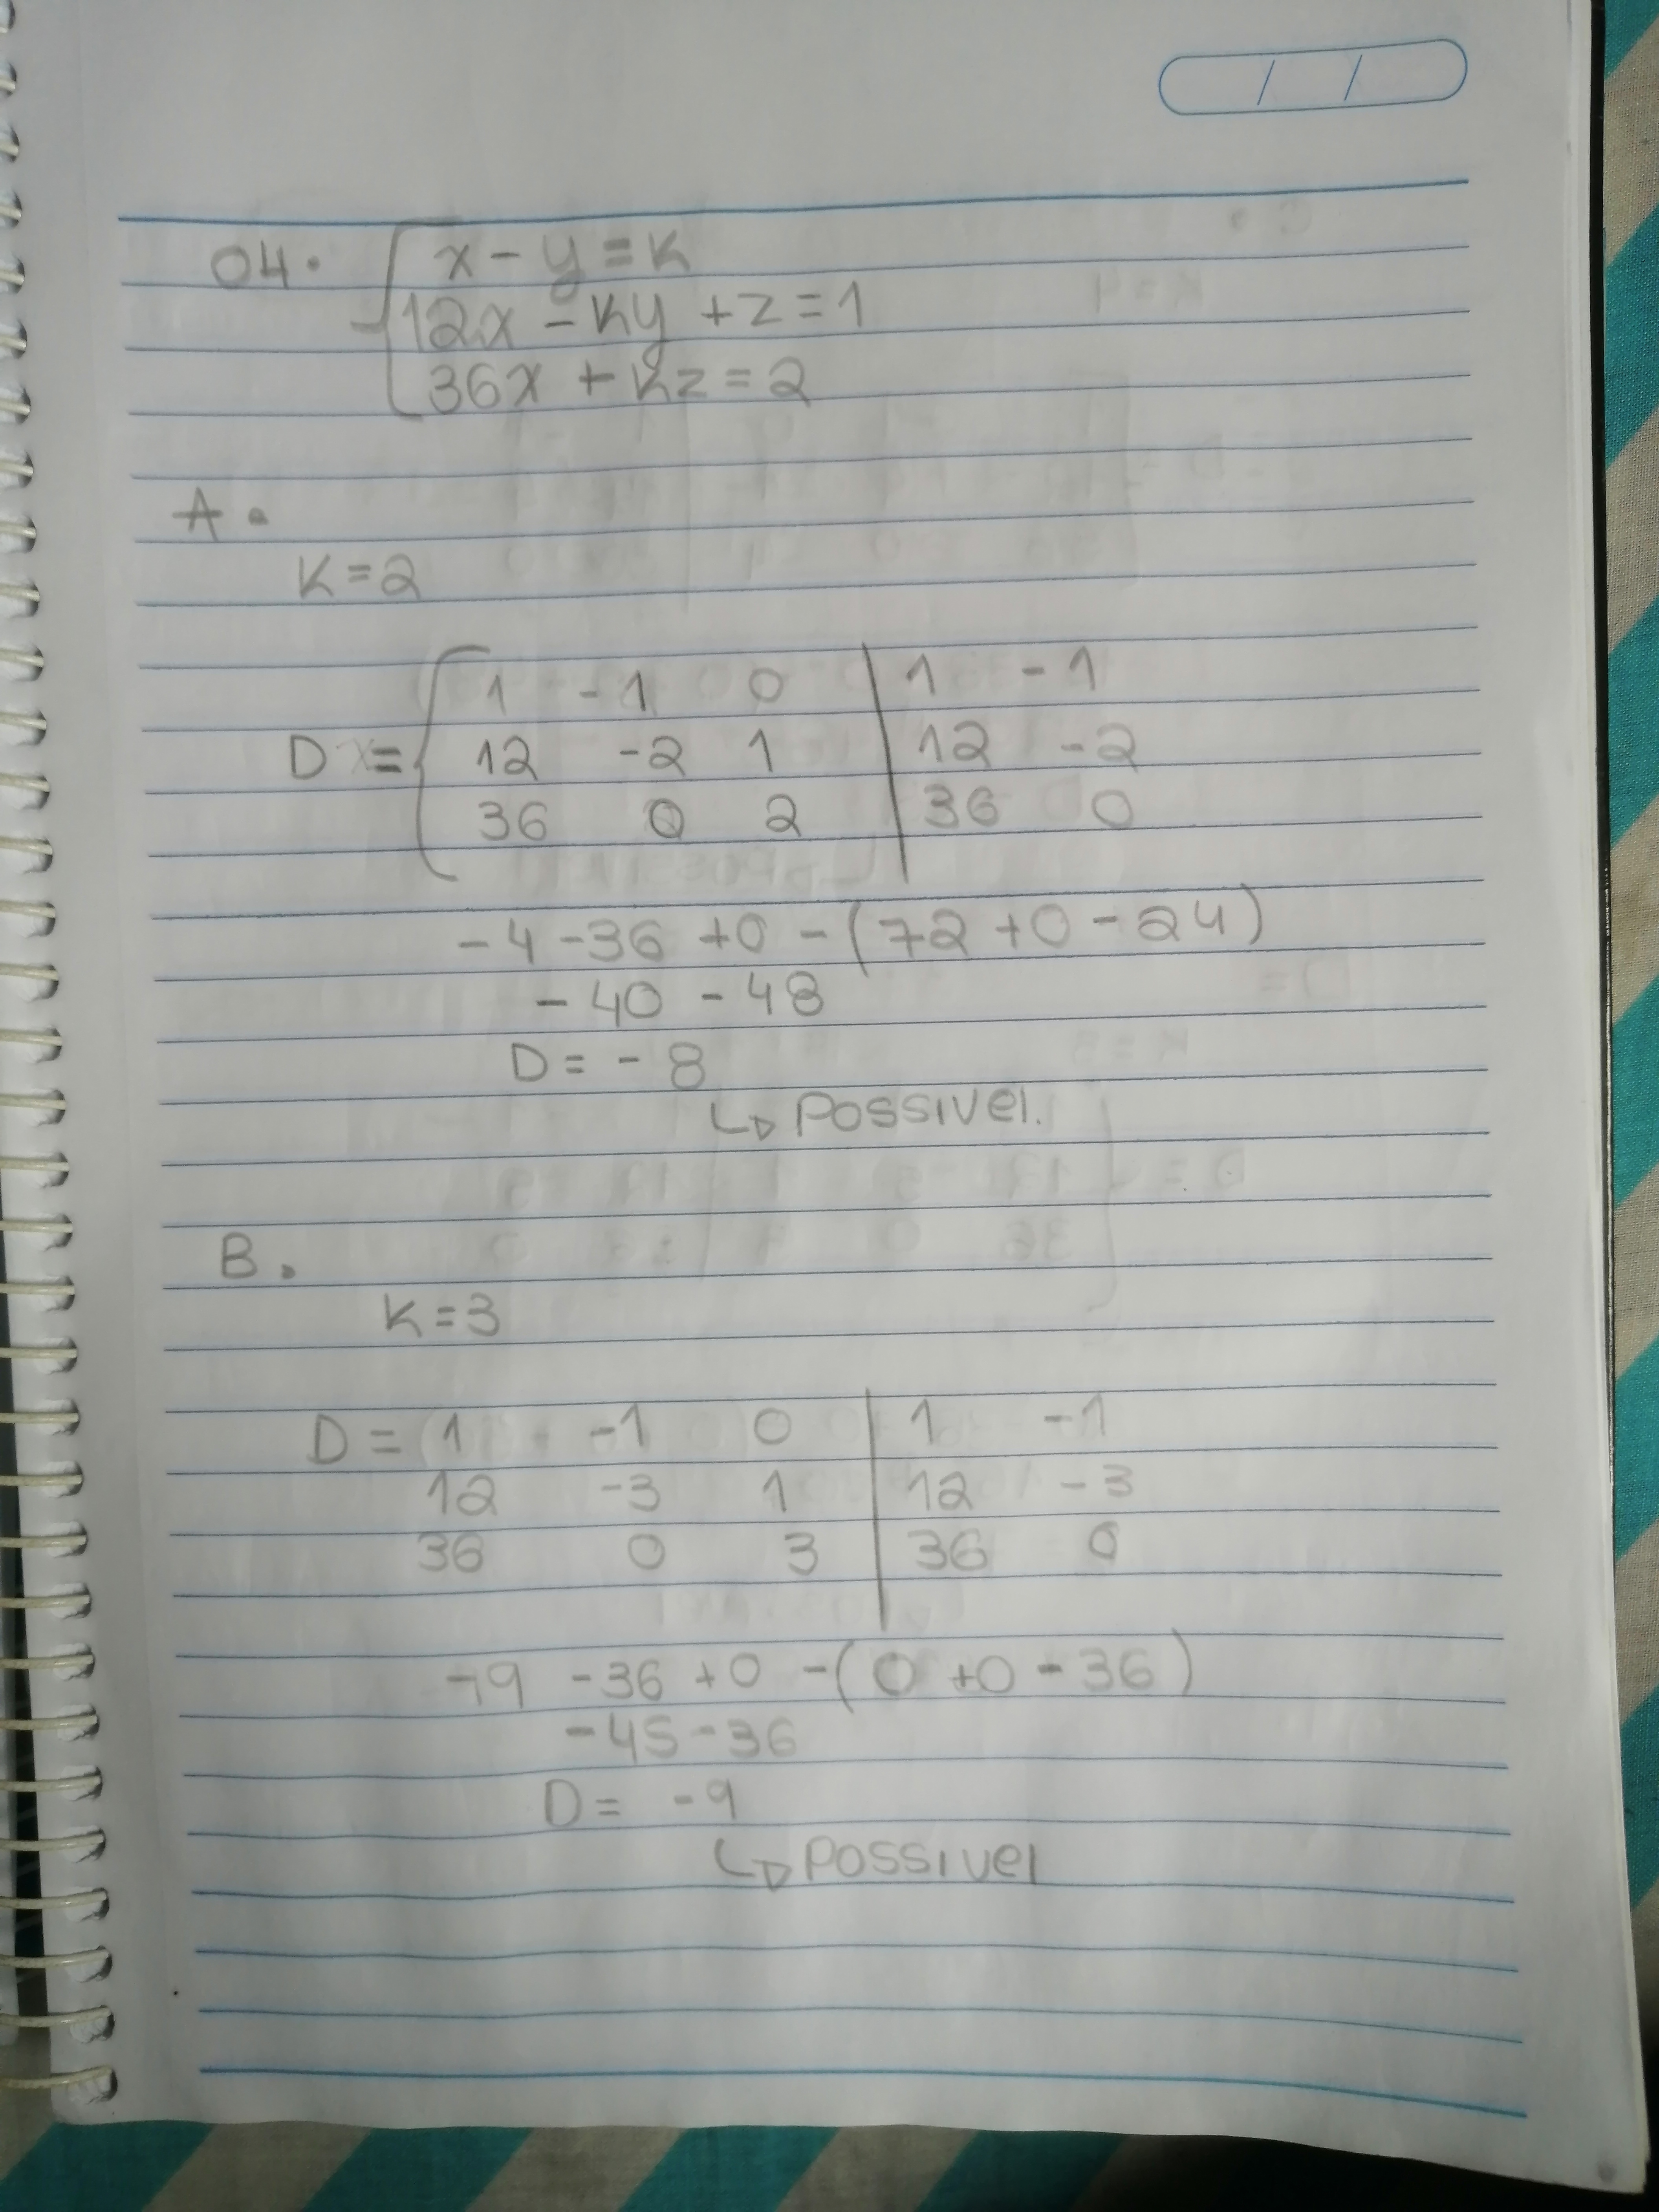 04. x - y = K
12x - Ky + z = 1
36x + Kz = 2
A.
K = 2
1 -1 0 | 1 -1
D = 12 -2 1 | 12 -2
36 0 2 | 36 0
-4 -36 +0 -(72 +0 -24)
-40 -48
D = -8
↳ POSSIVEL.
B.
K = 3
D = 1 -1 0 | 1 -1
12 -3 1 | 12 -3
36 0 3 | 36 0
-9 -36 +0 -(0 +0 -36)
-45 -36
D = -9
↳ POSSIVEL